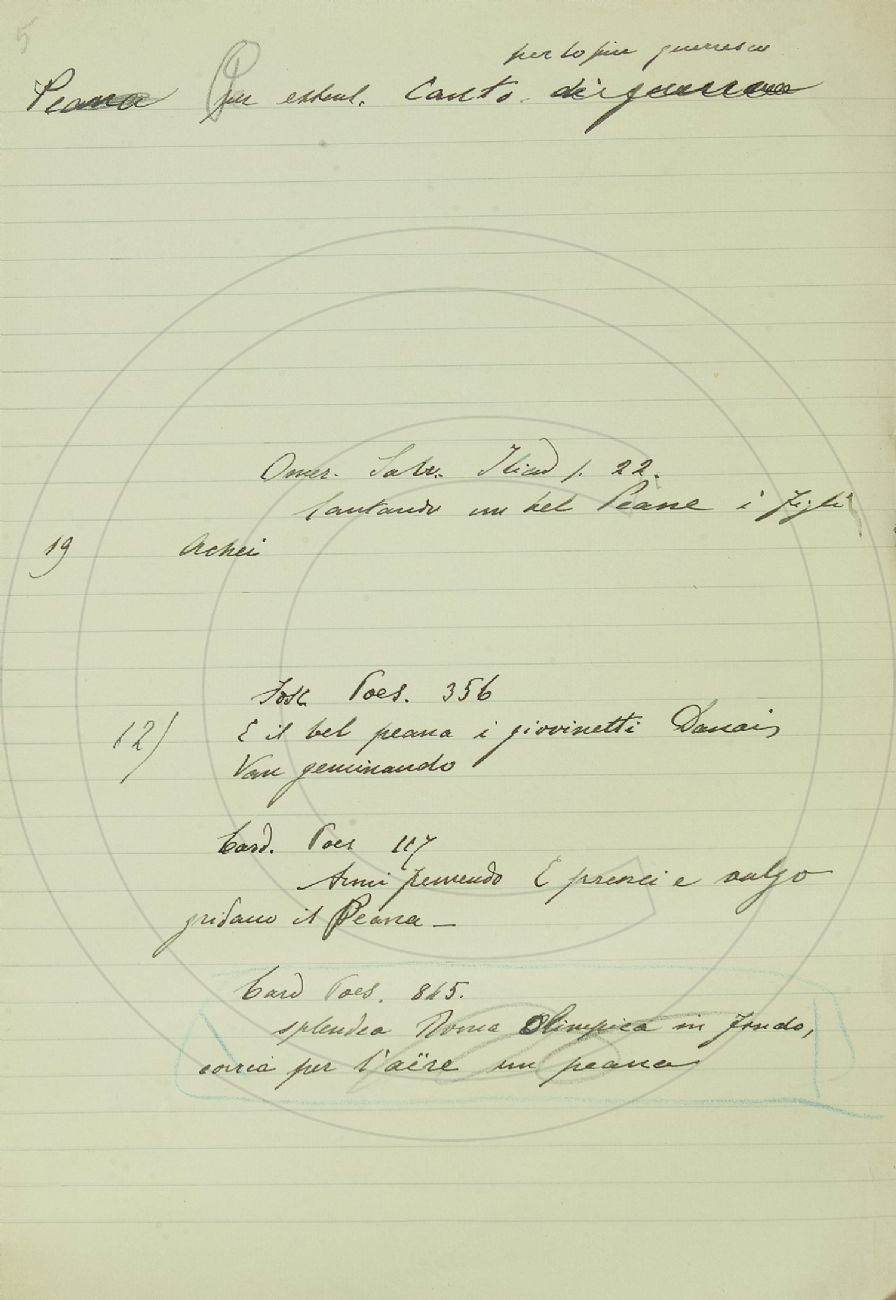 5
per lo più guerresco
Peana Per estens. Canto di guerra
Omer. Salv. Iliad 1. 22.
Cantando un bel Peane i figli
19 Achei
Fosc Poes. 356
12) E il bel peana i giovinetti Danai
Van geminando
Card. Poes 117
Armi fremendo E prenci e vulgo
gridano il Peana —
Card Poes. 815.
splendea Roma Olimpica in fondo,
corria per l'aëre un peana